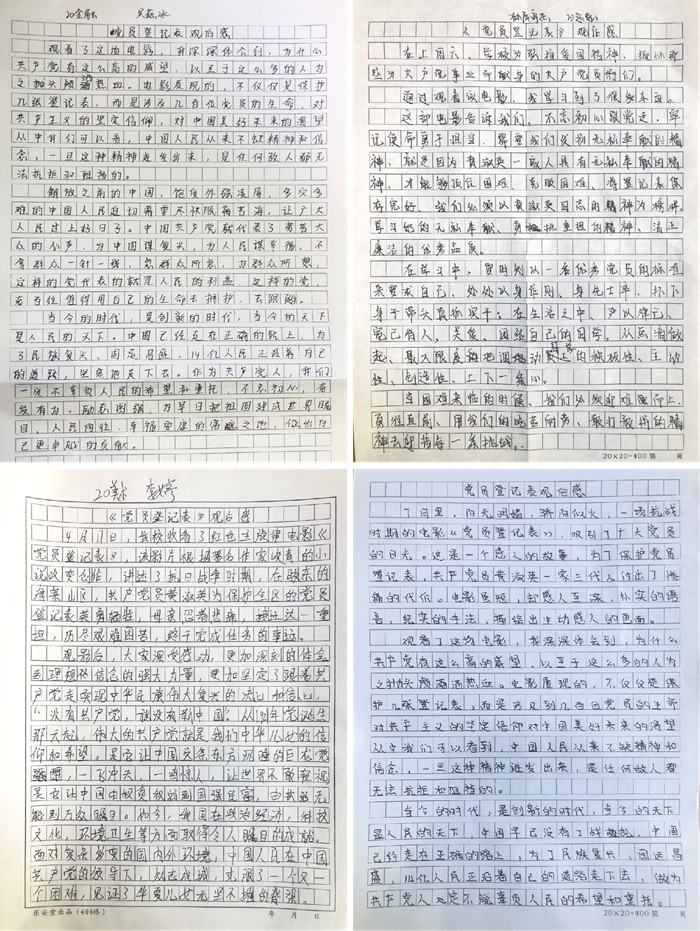 20金融
党员登记表观后感
观看了这场电影,我深深体会到,为什么
共产党有这么高的威望,以至于这么多的人为
之抛头颅洒热血。电影展现的,不仅仅是保护
几张登记表,而是涉及几百位党员的生命,对
共产主义的坚定信仰,对中国美好未来的渴望
从中我们可以看,中国人民从来不缺精神和信
念,一旦这种精神迸发出来,是任何敌人都无
法抗拒和阻挡的。
解放之前的中国,饱受外强凌辱,多灾多
难的中国人民迫切需要尽快脱离苦海,让广大
人民过上好日子。中国共产党就代表了劳苦大
众的心声,为中国谋复兴,为人民谋幸福,不
拿群众一针一线,急群众所急,为群众所想,
这样的党代表的就是人民的利益,这样的党,
当今的时代,是创新的时代,当今的天下
是人民的天下。中国已经走在正确的路上,为
了民族复兴、国运昌盛,14亿人民正沿着自己
的道路,坚定地走下去。作为共产党人,我们
一定不辜负人民的希望和重托,不忘初心,奋
发有为,励志图强,为早日把祖国建成世界瞩
目、人民向往、幸福安康的
己更卓越的贡献。
《党员登记表》观后感
在上周六、学校为弘扬爱国精神、缅怀那
些为共产党事业而献身的共产党员们。
通过观看该电影、我学习到了很多东西。
这部电影告诉我们、不忘初心跟党走、牢
记使命勇于担当、需要我们发扬无私奉献的精
神、就是因为黄淑英一家人具有无私奉献的精
神、才能够抵住困难、克服困难、将登记表保
存完好、我们必须以黄淑英同志的精神为榜样、
学习她的无私奉献、勇挑重担的精神、清正
廉洁的优秀品质。
在学习中、要时刻以一名优秀党员的标准
来要求自己、处处以身作则、身先士卒、扑下
身子带头真抓实干;在生活之中、严以律己、
宽己待人、关爱、团结自己的同学、从点滴做
起、最大限度地调动员工的积极性、主动
性、创造性、上下一条心。
当困难来临的时候、我们必须迎难而上、
勇往直前、用我们的吃苦耐劳、敢打敢拼的精
神去迎接每一条挑战。
20×20=400 第 页
20美术 李婷
《党员登记表》观后感
4月17日,我校收看了红色主旋律电影《
党员登记表》,该影片根据著名作家峻青的小
说改变创作,讲述了抗日战争时期,在胶东的
海莱山区,共产党员黄淑英为保护全区的党员
登记表英勇牺牲,母亲忍着悲痛,接过这一重
担,历尽艰难困苦,终于完成任务的事迹。
观影后,大家深受感动,更加深刻的体会
到理想和信念的强大力量,更加坚定了跟着共
产党走实现中华民族伟大复兴的决心和信心。
“没有共产党,就没有新中国!从1921年党诞生
那天起,伟大的共产党就是我们中华儿女的信
仰和希望。是它让中国这条东方沉睡的巨龙觉
醒,一飞冲天,一鸣惊人,让世界不敢轻视
是它让中国由积贫积弱到国强民富,由我弱无
能到万众瞩目。如今,我国在政治经济,科技
文化,环境卫生等方面取得令人瞩目的成就。
面对复杂多变的国内外环境,中国人民在中国
共产党的领导下,众志成城,克服了一个又一
个困难,见证了华夏儿女无坚不摧的奇迹。
乐安堂出品(400格)
年 月 日
党员登记表观后感
17日里,阳光洒媚,骄阳似火,一场抗战
时期的电影《党员登记表》,吸引了广大党员
的目光。这是一个感人的故事,为了保护党员
登记表,共产党员黄淑英一家三代人付出了惨
痛的代价。电影虽短,却感人至深,朴实的语
言,纪实的手法,描绘出生动感人的画面。
观看了这场电影,我深深体会到,为什么
共产党有这么高的威望,以至于这么多的人为
之抛头颅洒热血。电影展现的,不仅仅是保
护几张登记表,而是涉及到几百位党员的生命
对共产主义的坚定信仰对中国美好未来的渴望
从中我们可以看到,中国人民从来不缺精神和
信念,一旦这种精神迸发出来,是任何敌人都
无法抗拒和阻挡的。
当今的时代,是创新的时代,当今的天下
是人民的天下,中国早已没有了战乱,中国
已经走在正确的路上,为了民族复兴,国运昌
盛,14亿人民正沿着自己的道路走下去,做为
共产党人一定不能辜负人民的希望和重托。
20×20=400 第 页